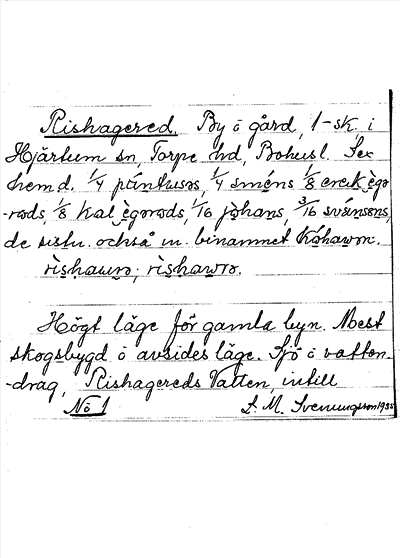 Rishagered. By o gård, 1-sk. i
Hjärtum sn, Torpe hd, Bohusl. Sex
hemd. 1/4 1/4 sméns 1/8
-røds, 1/8 Kal ègorøds, 1/16 jòhans, 3/16 svǽnsøns,
de sistn. också m. binamnet
rìshaurø; rìshawrø.
Högt läge för gamla byn. Mest
skogsbygd o avsides läge. Sjö o vatten-
-drag, Rishagereds Vatten, intill
No 1 S. M. Svenungsson 1935